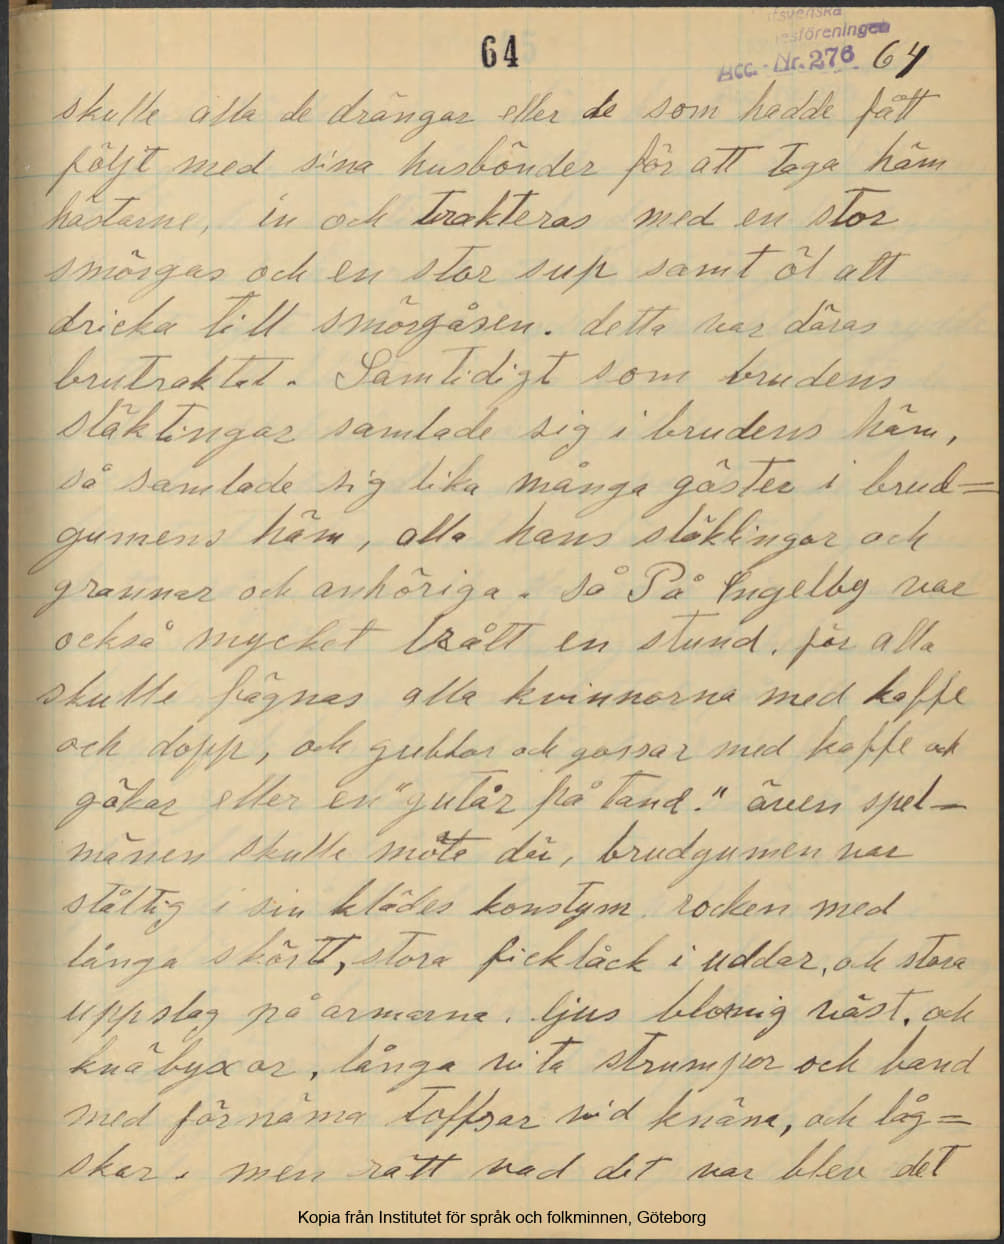 64
Acc. Nr. 276 64
skulle alla de drängar eller de som hadde fått
följt med sina husbönder för att taga häm
hästarne, in och trakteras med en stor
smörgas och en stor sup samt öl att
dricka till smörgåsen. detta var däras
brutraktat. Samtidigt som brudens
släktingar samlade sig i brudens häm,
så samlade sig lika många gäster i brud=
gumens häm, alla hans släktingar och
grannar och anhöriga. så På Engelby var
också mycket brått en stund. för alla
skulle fägnas alla kvinnorna med kaffe
och dopp, och gubbar och gossar med kaffe och
gökar eller en "gutår på tand." även spel-
männen skulle möta där, brudgumen var
ståttlig i sin klädes konstym. rocken med
långa skört, stora ficklåck i uddar, och stora
uppslag på armarna. ljus blomig väst. och
knäbyxor, långa vita strumpor och band
med förnäma toffsar vid knäna, och låg=
skor. men rätt vad det var blev det
Kopia från Institutet för språk och folkminnen, Göteborg